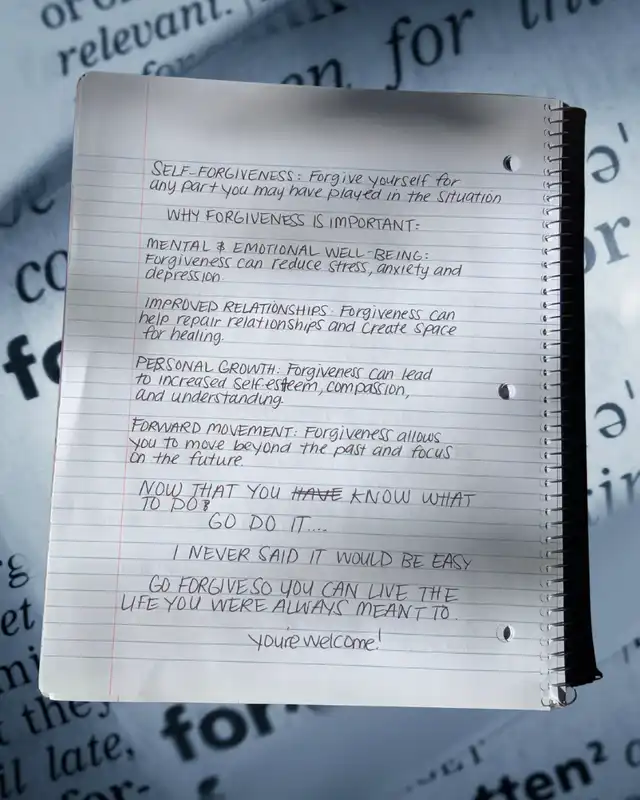 or o
relevant.
for
on for
SELF-FORGIVENESS: Forgive yourself for
any part you may have played in the situation
WHY FORGIVENESS IS IMPORTANT:
MENTAL & EMOTIONAL WELL-BEING:
Forgiveness can reduce stress, anxiety and
depression.
IMPROVED RELATIONSHIPS: Forgiveness can
help repair relationships and create space
for healing.
PERSONAL GROWTH: Forgiveness can lead
to increased self-esteem, compassion,
and understanding.
FORWARD MOVEMENT: Forgiveness allows
you to move beyond the past and focus
on the future.
NOW THAT YOU HAVE KNOW WHAT
TO DO?
GO DO IT....
I NEVER SAID IT WOULD BE EASY
GO FORGIVE SO YOU CAN LIVE THE
LIFE YOU WERE ALWAYS MEANT TO.
you're welcome!
et
they
il late,
for-
for
tten²